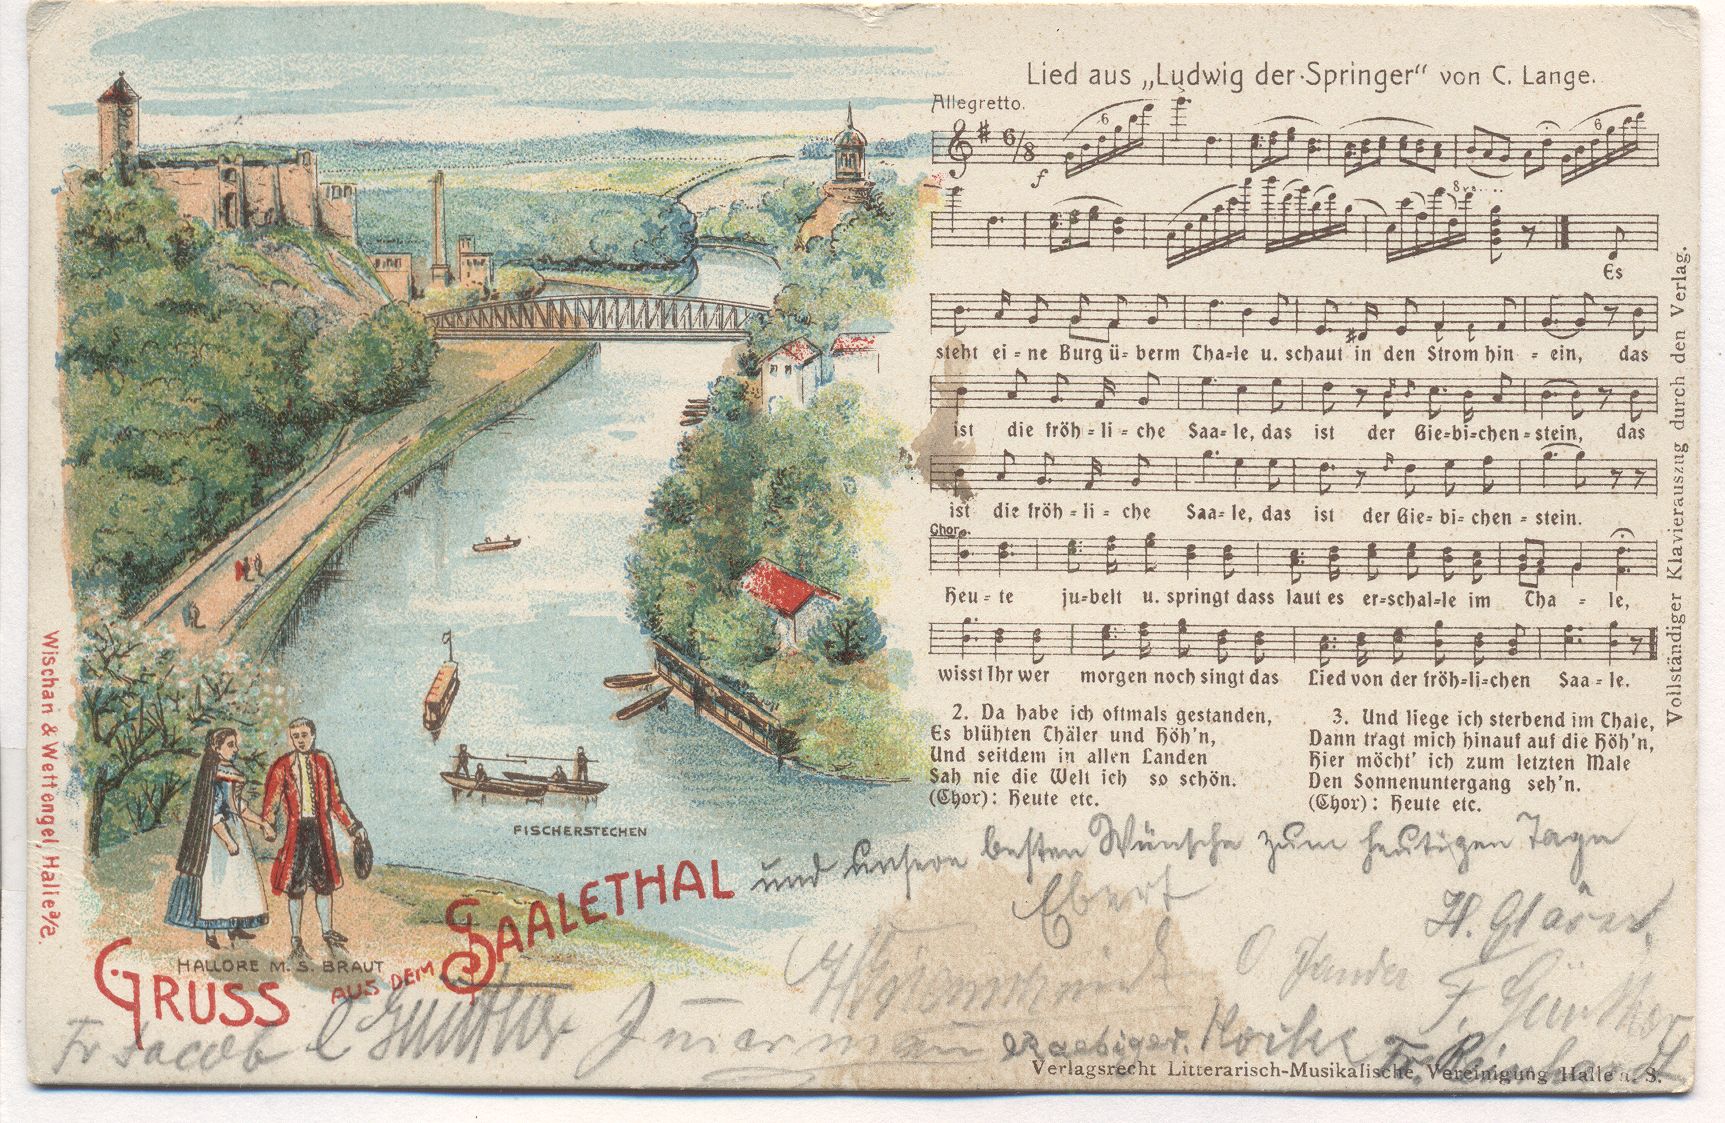 Lied aus „Ludwig der Springer“ von C. Lange.
Allegretto.
6/8
6
6
f
8va....
Es
steht ei=ne Burg ü=berm Tha=le u. schaut in den Strom hin=ein, das
ist die fröh=li=che Saa=le, das ist der Gie=bi=chen=stein, das
ist die fröh=li=che Saa=le, das ist der Gie=bi=chen=stein.
Chor.
Heu=te jubelt u. springt dass laut es er=schal=le im Tha=le,
wisst Ihr wer morgen noch singt das Lied von der fröh=li=chen Saa=le.
2. Da habe ich oftmals gestanden,
Es blühten Thäler und Höh'n,
Und seitdem in allen Landen
Sah nie die Welt ich so schön.
(Chor): Heute etc.
3. Und liege ich sterbend im Thale,
Dann tragt mich hinauf auf die Höh'n,
Hier möcht' ich zum letzten Male
Den Sonnenuntergang seh'n.
(Chor): Heute etc.
Vollständiger Klavierauszug durch den Verlag.
Wischan & Wettengel, Halle a/S.
FISCHERSTECHEN
HALLORE M. S. BRAUT
GRUSS AUS DEM SAALETHAL
und unsere besten Wünsche zum heutigen Tage
Ebert
H. Gläser
F. Günther
Fr Jacob C Günther
Raebiger.
Fr. Reinhardt
Verlagsrecht Litterarisch-Musikalische Vereinigung Halle a. S.